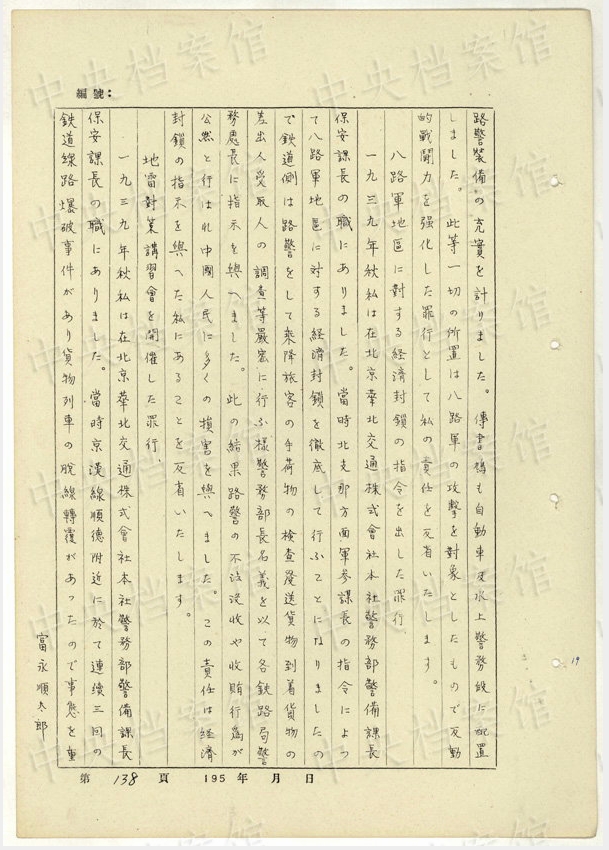 編號：
路警装備の充實を計りました。傳書鳩も自動車及水上警務段に配置
しました。此等一切の所置は八路軍の攻撃を対象としたもので反動
的戰闘力を強化した罪行として私の責任を反省いたします。
八路軍地區に対する経済封鎖の指令を出した罪行、
一九三九年秋私は在北京華北交通株式會社本社警務部警備課長
保安課長の職にありました。當時北支那方面軍参謀長の指令によつ
て八路軍地區に対する経済封鎖を徹底して行ふことになりましたの
で鉄道側は路警をして乘降旅客の手荷物の検査發送貨物到着貨物の
差出人受取人の調査等嚴密に行ふ様警務部長名義を以て各鉄路局警
務處長に指示を與へました。此の結果路警の不法沒收や收賄行爲が
公然と行はれ中國人民に多くの損害を與へました。この責任は経済
封鎖の指示を與へた私にあることを反省いたします。
地雷対策講習會を開催した罪行、
一九三九年秋私は在北京華北交通株式會社本社警務部警備課長
保安課長の職にありました。當時京漢線順徳附近に於て連續三回の
鉄道線路爆破事件があり貨物列車の脱線轉覆があつたので事態を重
富永順太郎
第 138 頁 195 年 月 日
19
中央档案馆